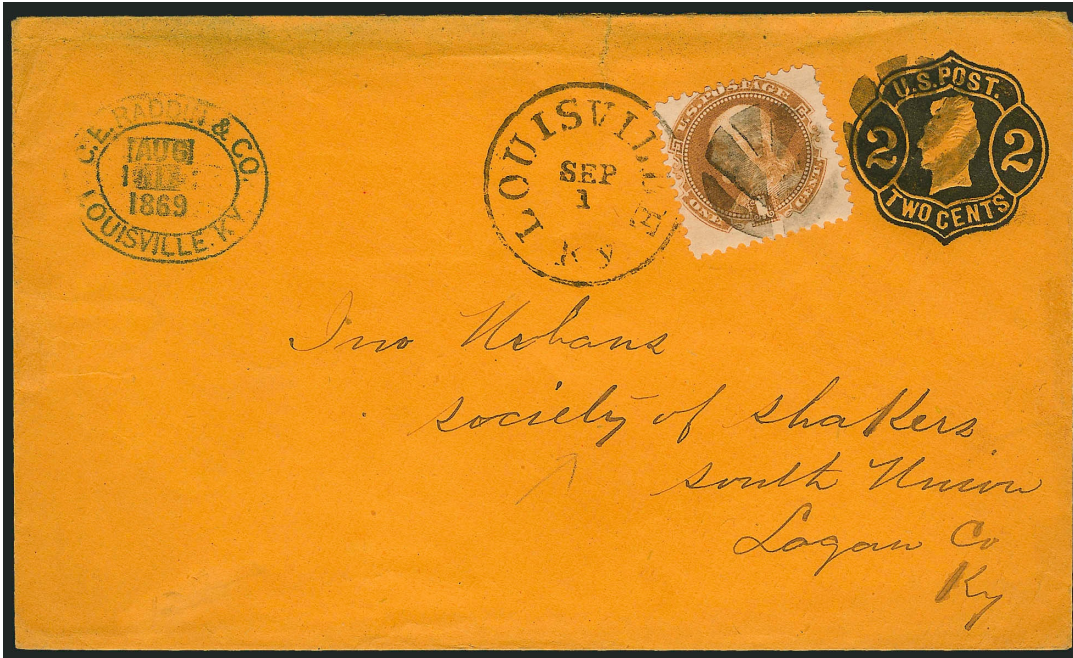 C.E. RADDIN & CO.
AUG
1869
LOUISVILLE. KY
LOUISVILLE
SEP
1
Ky
U.S. POSTAGE
ONE CENT
1
U.S. POST.
2 2
TWO CENTS
Jno
society of shakers
south Union
Logan Co
Ky